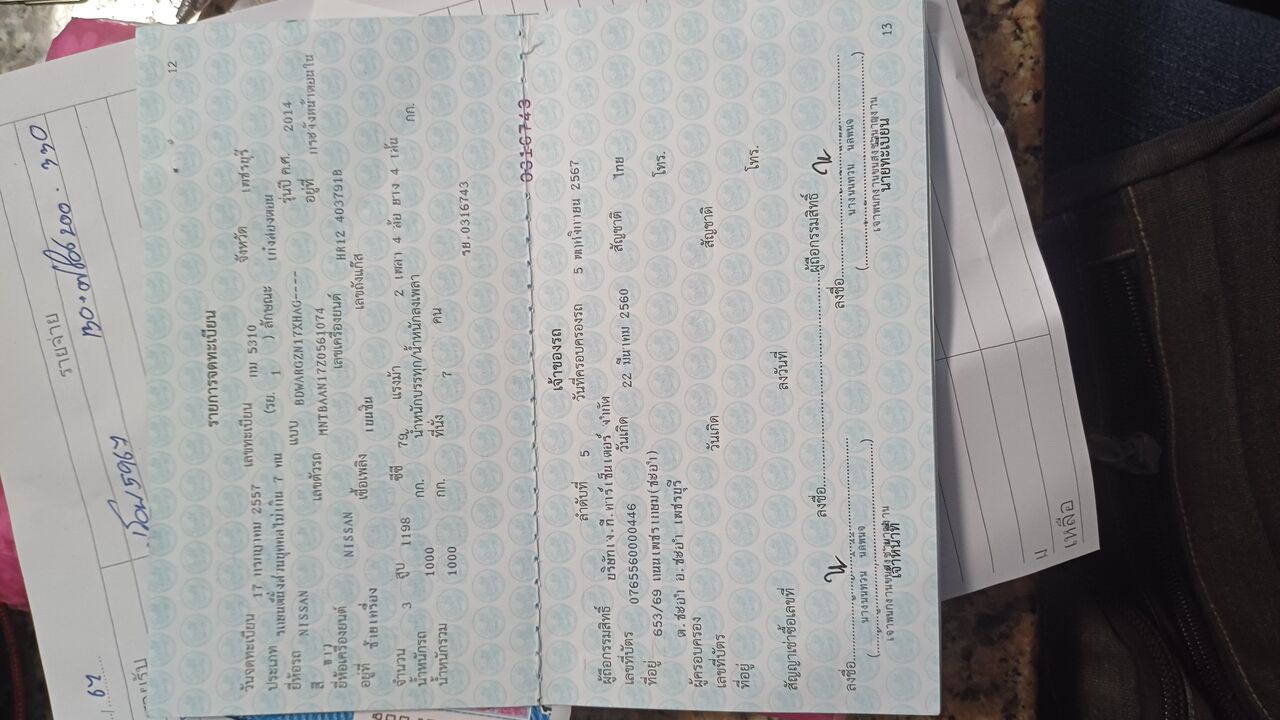 12
รายการจดทะเบียน
วันจดทะเบียน 17 กรกฎาคม 2557 เลขทะเบียน กม 5310 จังหวัด เพชรบุรี
ประเภท รถยนต์นั่งส่วนบุคคลไม่เกิน 7 คน (รย. 1 ) ลักษณะ เก๋งสองตอน
ยี่ห้อรถ NISSAN แบบ BDWARGZN17XHAG---- รุ่นปี ค.ศ. 2014
สี ขาว เลขตัวรถ MNTBAAN17Z0561074 อยู่ที่
ยี่ห้อเครื่องยนต์ NISSAN เลขเครื่องยนต์ HR12 403791B
อยู่ที่ ซ้ายเครื่อง เชื้อเพลิง เบนซิน เลขถังแก๊ส
จำนวน 3 สูบ 1198 ซีซี 79 แรงม้า 2 เพลา 4 ล้อ ยาง 4 เส้น
น้ำหนักรถ 1000 กก. น้ำหนักบรรทุก/น้ำหนักลงเพลา กก.
น้ำหนักรวม 1000 กก. ที่นั่ง 7 คน
รย.0316743
0316743
เจ้าของรถ
ลำดับที่ 5 วันที่ครอบครองรถ 5 พฤศจิกายน 2567
ผู้ถือกรรมสิทธิ์ บริษัท เจ.ที.คาร์เซ็นเตอร์ จำกัด
เลขที่บัตร 0765560000446 วันเกิด 22 มีนาคม 2560 สัญชาติ ไทย
ที่อยู่ 653/69 ถนนเพชรเกษม(ชะอำ) โทร.
ต.ชะอำ อ.ชะอำ เพชรบุรี
ผู้ครอบครอง
เลขที่บัตร วันเกิด สัญชาติ
ที่อยู่ โทร.
สัญญาเช่าซื้อเลขที่ ลงวันที่
ลงชื่อ ผู้ถือกรรมสิทธิ์
ลงชื่อ ลงชื่อ
เจ้าหน้าที่ นายทะเบียน
13
รายจ่าย
330
67
เหลือ